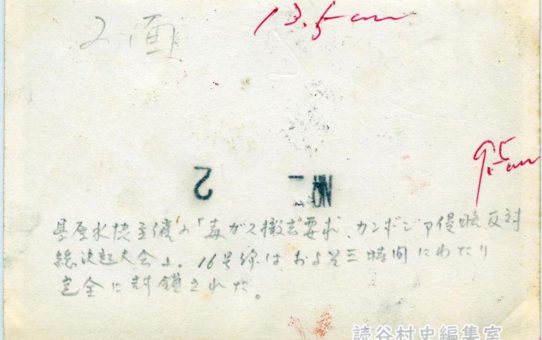 2面
13.5cm
9.5cm
2
県原水協主催の「毒ガス撤去要求、カンボジア侵略反対
総決起大会」。16号線はおよそ三時間にわたり
完全に封鎖された。
読谷村史編集室